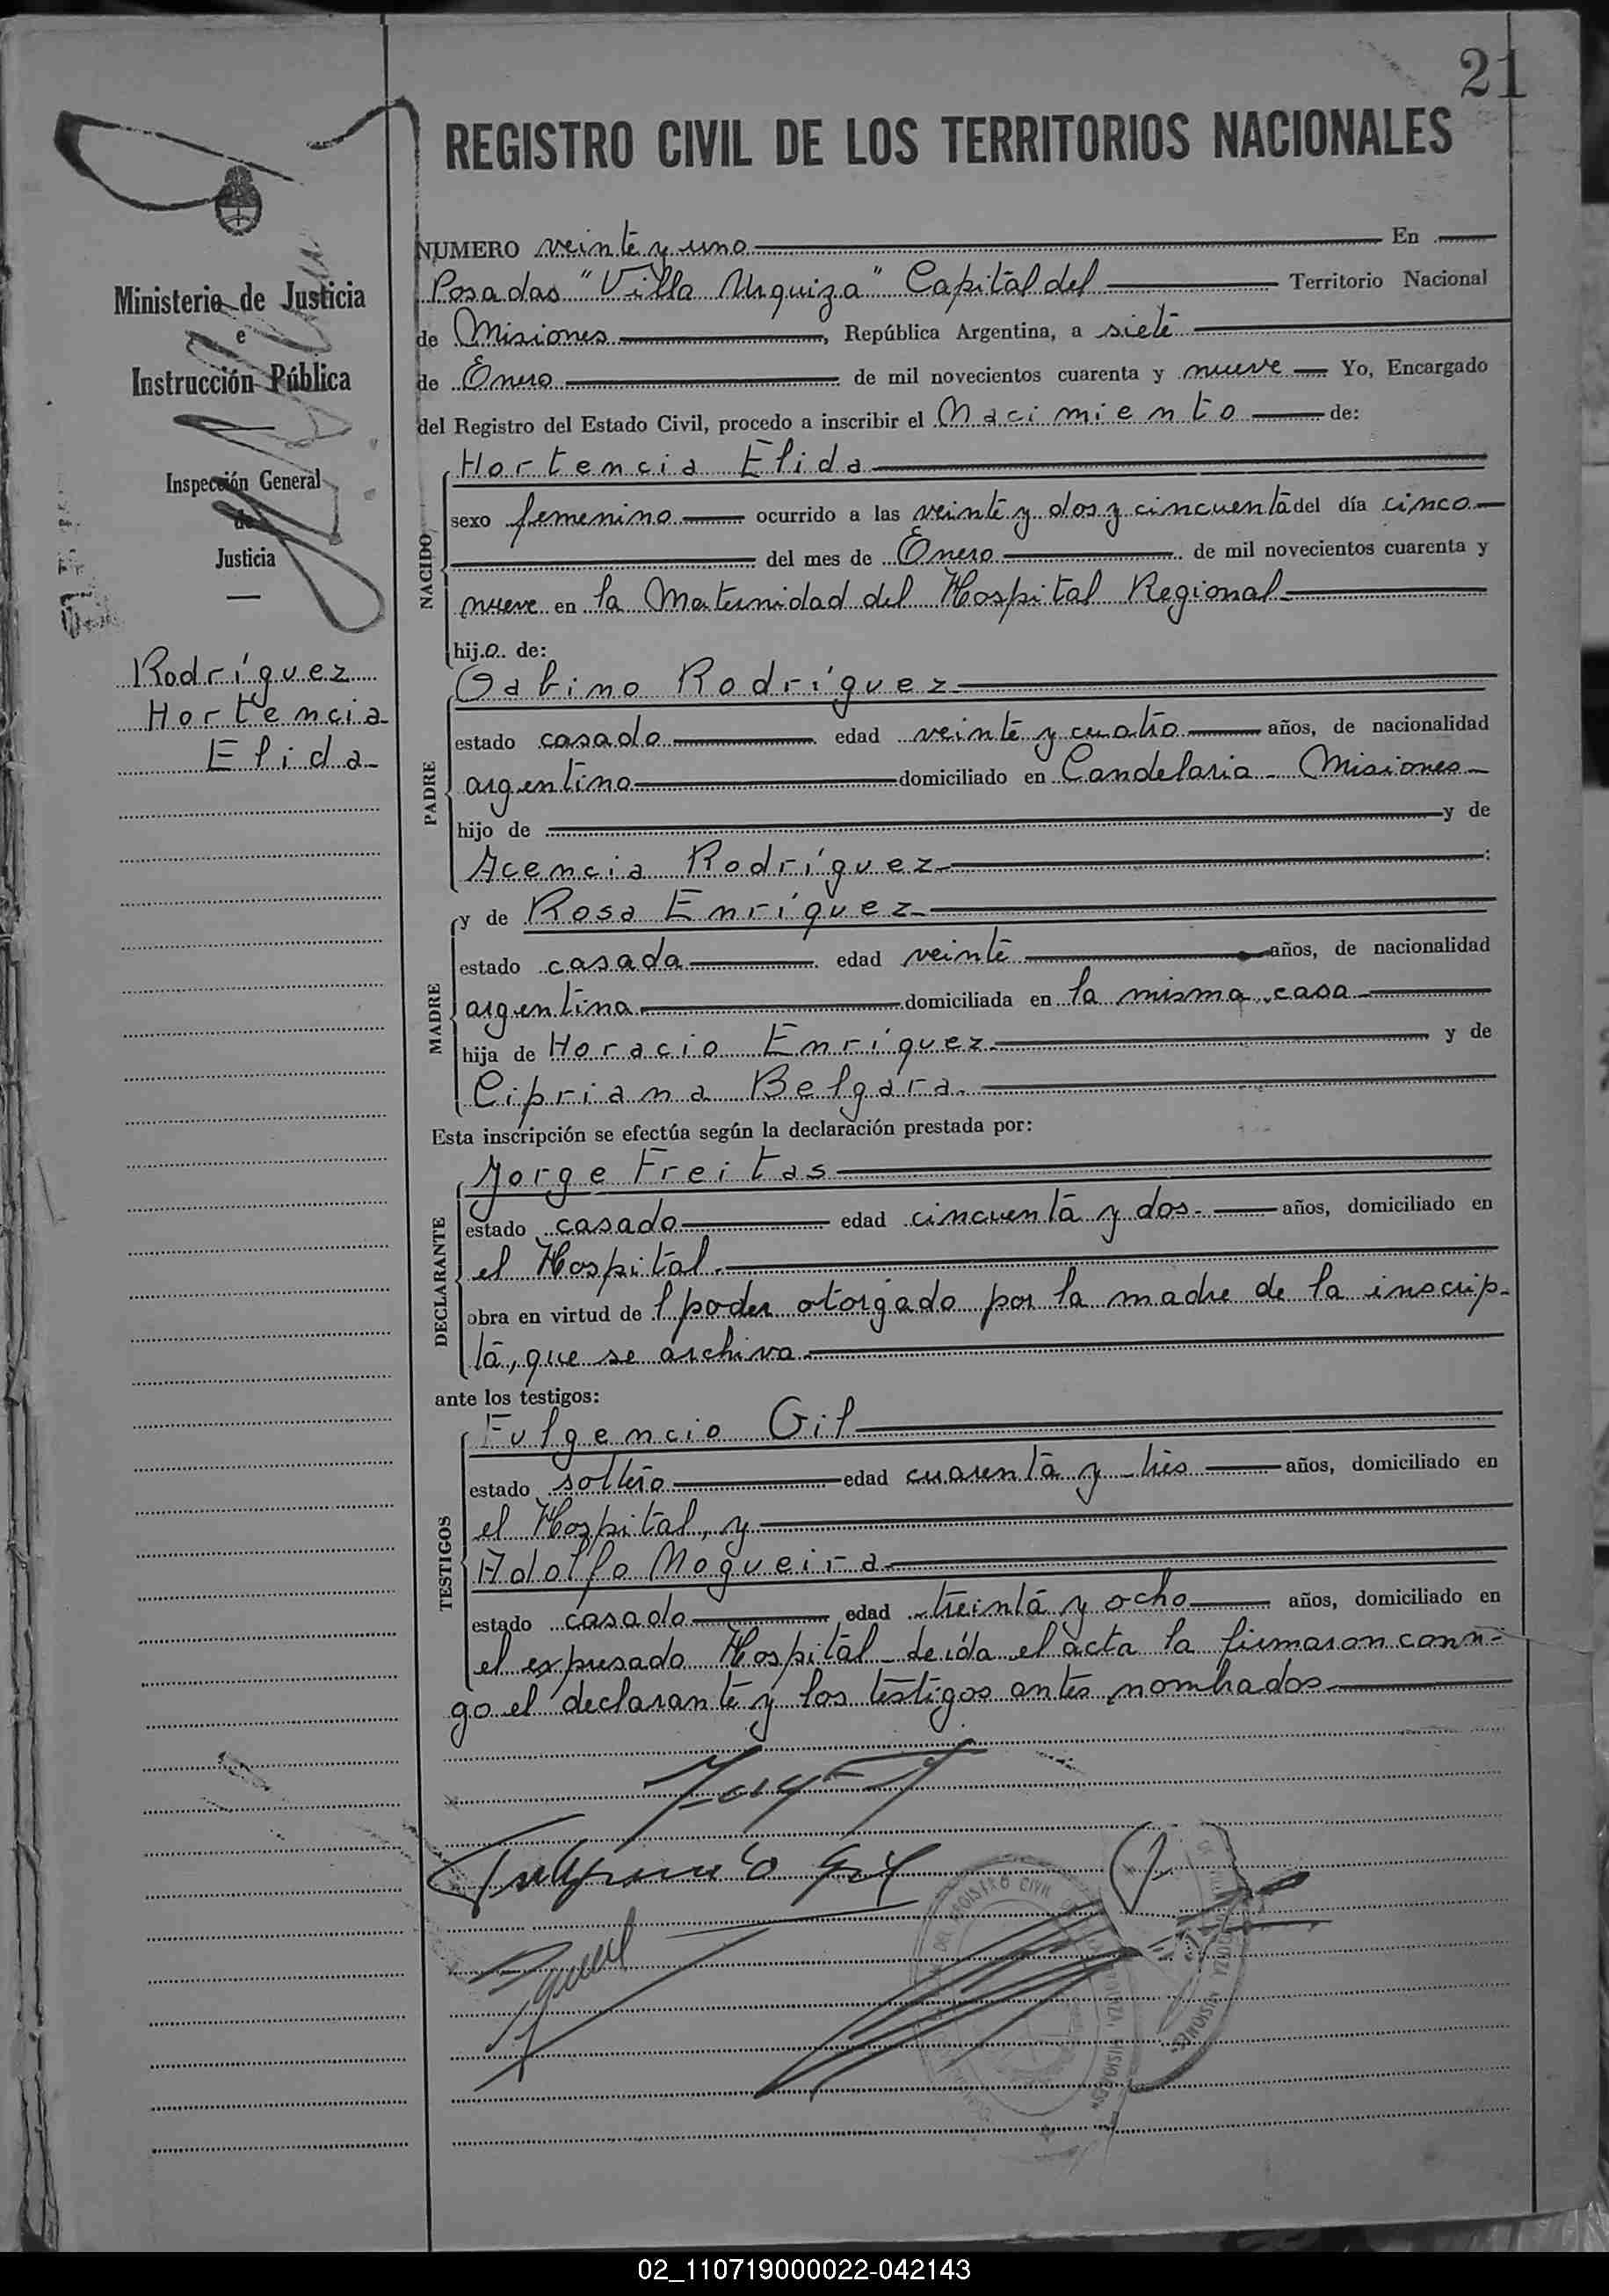 21
REGISTRO CIVIL DE LOS TERRITORIOS NACIONALES
Ministerio de Justicia
e
Instrucción Pública
Inspección General
de
Justicia
Rodríguez
Hortencia
Elida
NUMERO veinte y uno En
Posadas "Villa Urquiza" Capital del Territorio Nacional
de Misiones, República Argentina, a siete
de Enero de mil novecientos cuarenta y nueve Yo, Encargado
del Registro del Estado Civil, procedo a inscribir el Nacimiento de:
NACIDO
Hortencia Elida
sexo femenino ocurrido a las veinte y dos y cincuenta del día cinco
del mes de Enero de mil novecientos cuarenta y
nueve en la Maternidad del Hospital Regional
hija de:
PADRE
Gabino Rodríguez
estado casado edad veinte y cuatro años, de nacionalidad
argentino domiciliado en Candelaria - Misiones
hijo de y de
Acencia Rodríguez:
MADRE
y de Rosa Enríquez
estado casada edad veinte años, de nacionalidad
argentina domiciliada en la misma casa
hija de Horacio Enríquez y de
Cipriana Belgara.
Esta inscripción se efectúa según la declaración prestada por:
DECLARANTE
Jorge Freitas
estado casado edad cincuenta y dos años, domiciliado en
el Hospital.
obra en virtud de l poder otorgado por la madre de la inscrip-
ta, que se archiva
ante los testigos:
TESTIGOS
Fulgencio Gil
estado soltero edad cuarenta y tres años, domiciliado en
el Hospital, y
Adolfo Nogueira
estado casado edad treinta y ocho años, domiciliado en
el expresado Hospital - leída el acta la firmaron conmi-
go el declarante y los testigos antes nombrados
Fulgencio Gil
DEL REGISTRO CIVIL
URQUIZA MISIONES
02_110719000022-042143